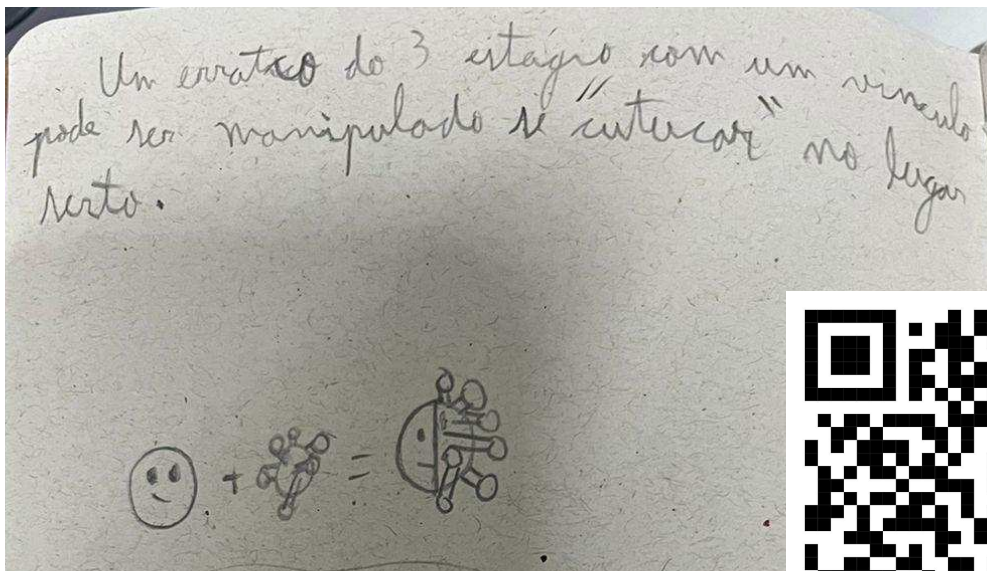 Um erratico do 3 estágio com um vinculo
pode ser manipulado se "cutucar" no lugar
serto.